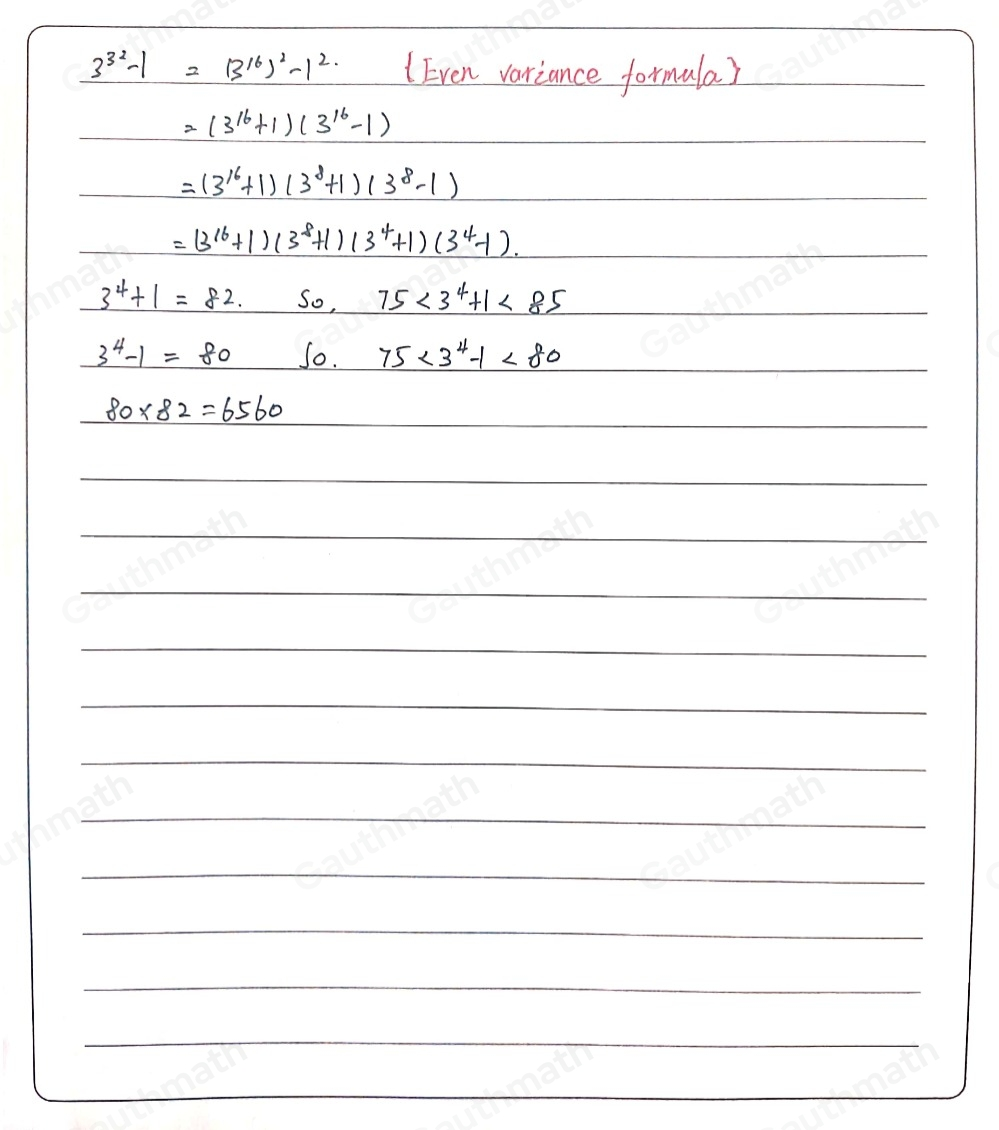 3³²-1 = (3¹⁶)²-1². {Even variance formula}
= (3¹⁶+1)(3¹⁶-1)
= (3¹⁶+1)(3⁸+1)(3⁸-1)
= (3¹⁶+1)(3⁸+1)(3⁴+1)(3⁴-1).
3⁴+1 = 82. So, 75<3⁴+1<85
3⁴-1 = 80 So. 75<3⁴-1<80
80×82=6560
Gauthmath